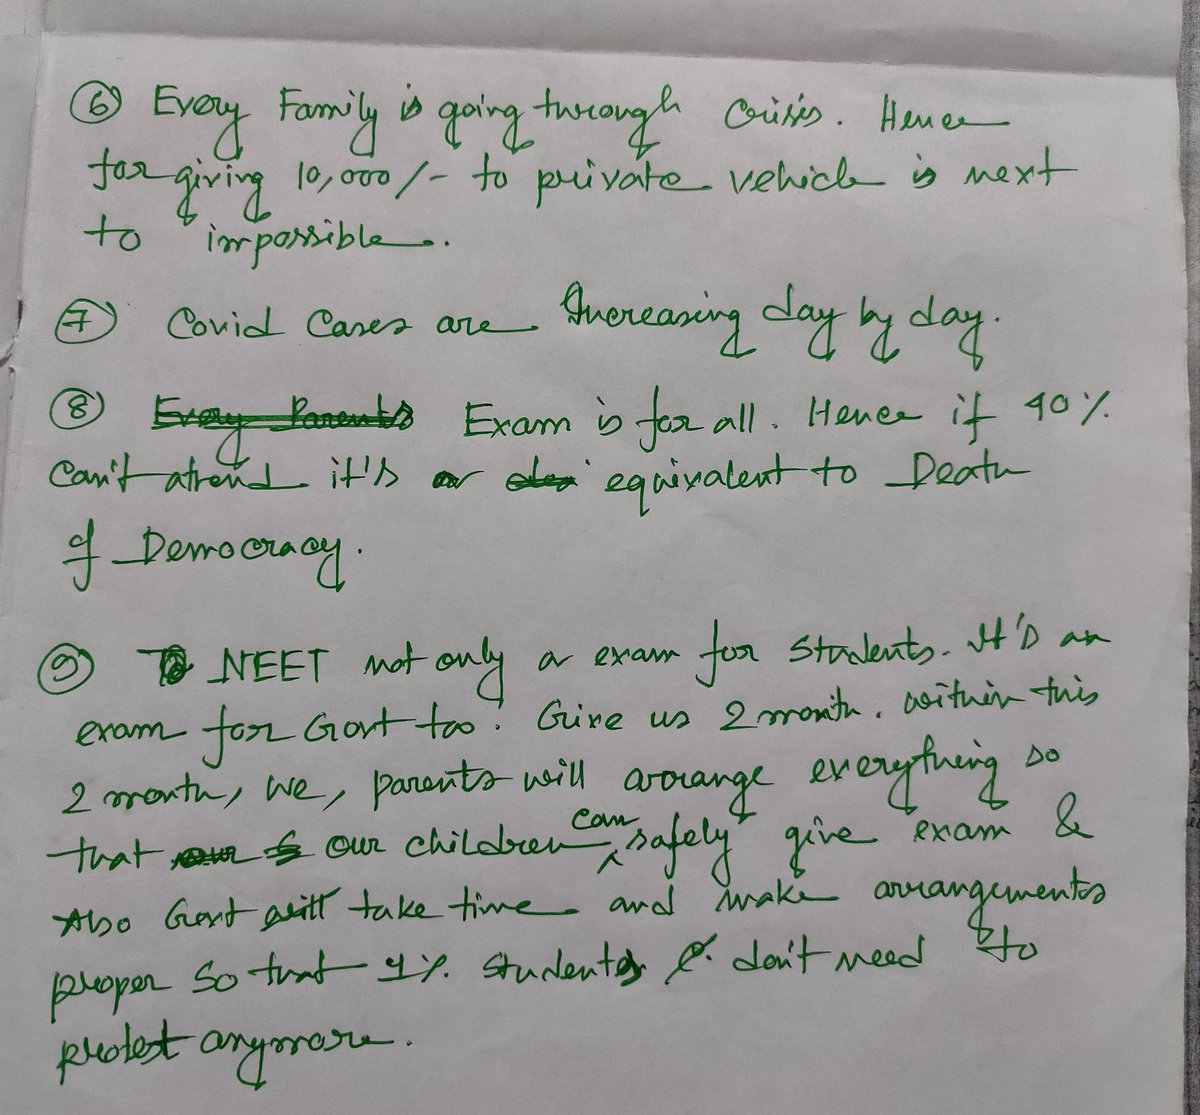 6 Every Family is going through Crisis. Hence
for giving 10,000/- to private vehicle is next
to impossible.
7 Covid Cases are Increasing day by day.
8 Every Parents Exam is for all. Hence if 40%
Can't attend it's a equivalent to Death
of Democracy.
9 NEET not only a exam for students. It's an
exam for Govt too. Give us 2 month. within this
2 month, we, parents will arrange everything so
that our our children can safely give exam &
Also Govt will take time and make arrangements
proper so that 1% students don't need to
protest anymore.